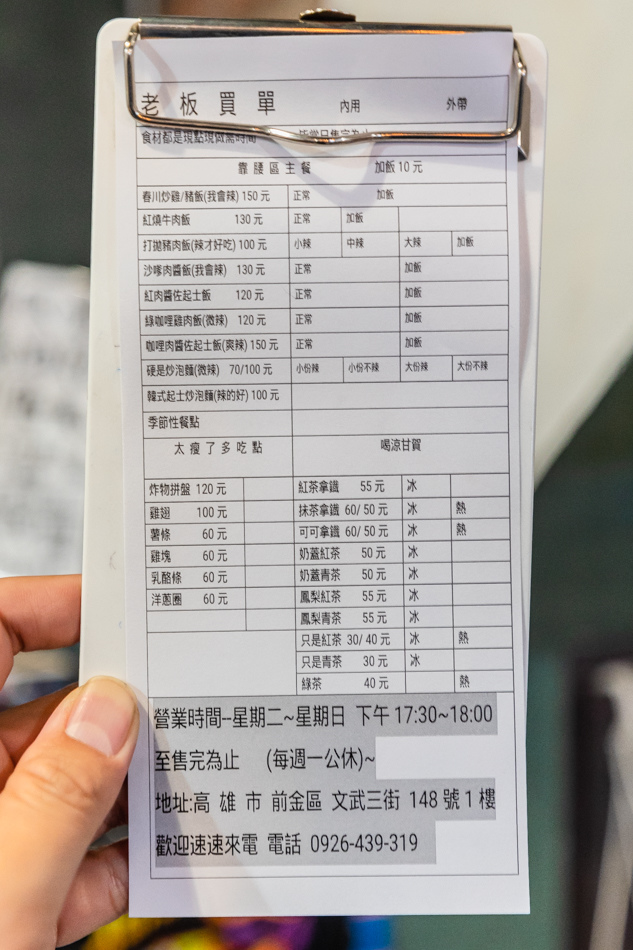 老板買單 內用 外帶
食材都是現點現做需時間 皆當日售完為止
靠腰區主餐 加飯10元
春川炒雞/豬飯(我會辣) 150元 正常 加飯
紅燒牛肉飯 130元 正常 加飯
打拋豬肉飯(辣才好吃) 100元 小辣 中辣 大辣 加飯
沙嗲肉醬飯(我會辣) 130元 正常 加飯
紅肉醬佐起士飯 120元 正常 加飯
綠咖哩雞肉飯(微辣) 120元 正常 加飯
咖哩肉醬佐起士飯(爽辣) 150元 正常 加飯
硬是炒泡麵(微辣) 70/100元 小份辣 小份不辣 大份辣 大份不辣
韓式起士炒泡麵(辣的好) 100元
季節性餐點
太瘦了多吃點 喝涼甘賀
炸物拼盤 120元 紅茶拿鐵 55元 冰
雞翅 100元 抹茶拿鐵 60/50元 冰 熱
薯條 60元 可可拿鐵 60/50元 冰 熱
雞塊 60元 奶蓋紅茶 50元 冰
乳酪條 60元 奶蓋青茶 50元 冰
洋蔥圈 60元 鳳梨紅茶 55元 冰
鳳梨青茶 55元 冰
只是紅茶 30/40元 冰 熱
只是青茶 30元 冰
綠茶 40元 熱
營業時間--星期二~星期日 下午17:30~18:00
至售完為止 (每週一公休)~
地址:高雄市 前金區 文武三街 148號1樓
歡迎速速來電 電話 0926-439-319